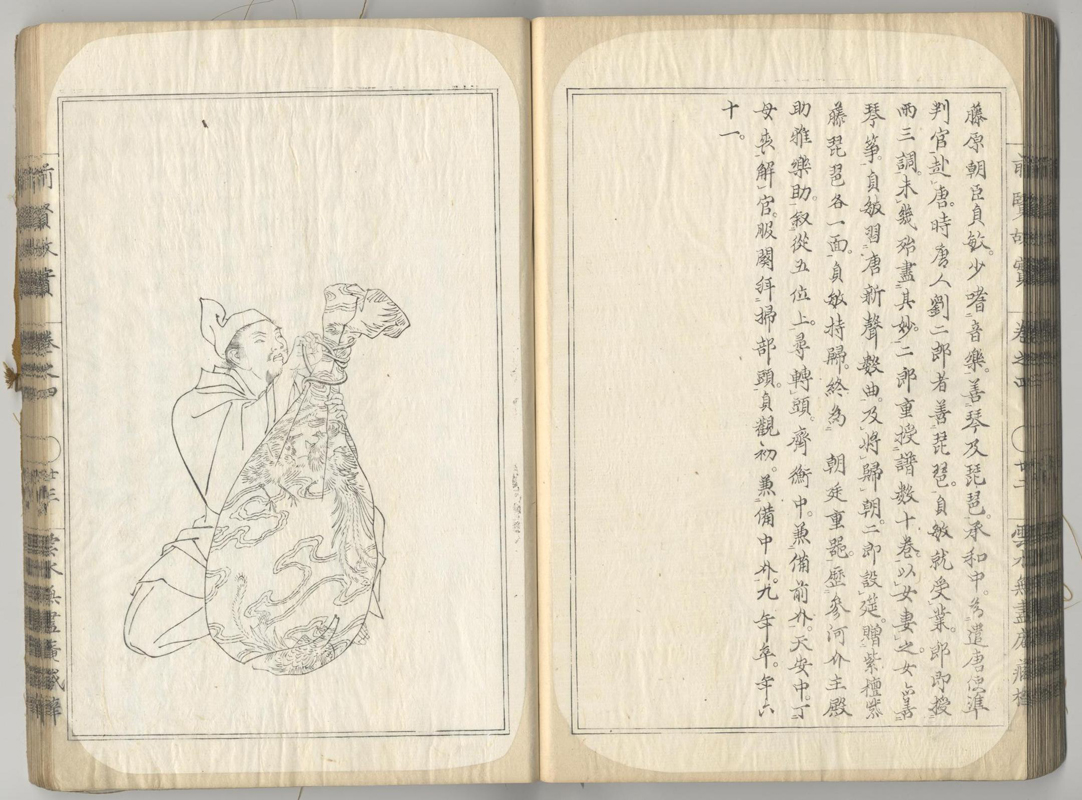 藤原朝臣貞敏。少嗜音樂。善琴及琵琶。承和中。為遣唐使準
判官赴唐。時唐人劉二郎者善琵琶。貞敏就受業。郎即授
兩三調。未幾殆盡其妙。二郎重授譜數十卷。以女妻之。女亦善
琴箏。貞敏習唐新聲數曲。及將歸朝。二郎設莚。贈紫檀紫
藤琵琶各一面。貞敏持歸。終為 朝廷重器。歷參河介主殿
助雅樂助。敘從五位上。尋轉頭。齊衡中。兼備前介。天安中。丁
母喪解官。服闋拜掃部頭。貞觀初。兼備中介。九年卒。年六
十一。
前賢故實 卷之四 〇 廿二 雲水無盡庵藏
前賢故實 卷之四 〇 廿三 雲水無盡庵藏